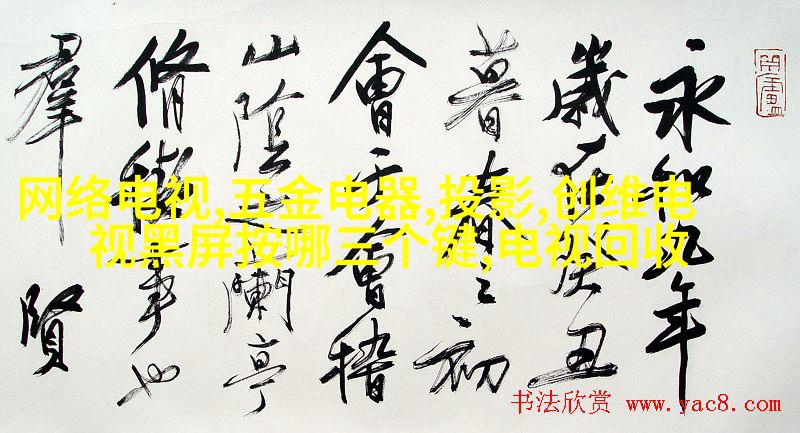 永和九年
歲在癸丑
暮春之初
會于會稽
山陰之蘭亭
脩稧事也
羣賢
网络电视,五金电器,投影,创维电
视黑屏按哪三个键,电视回收
书法欣赏 www.yac8.com